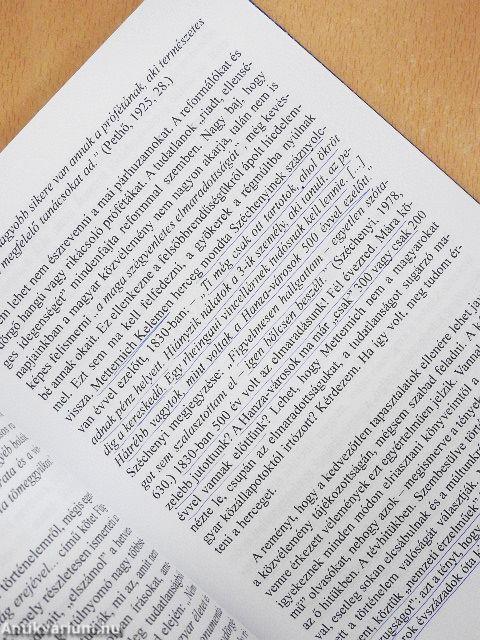 nagyobb sikere van annak a prófétának, aki természetes
megfelelő tanácsokat ad." (Pethő, 1925, 28.)
lehet nem észrevenni a mai párhuzamokat. A reformálókat és
dörgő hangú vagy rikácsoló prófétákat. A tudatlanok „rideg, ellensé-
ges idegenséget" mindenfajta reformmal szemben. Nagy baj, hogy
napjainkban a magyar közvélemény nem nagyon akarja, talán nem is
képes felismerni „a maga szégyenletes elmaradottságát", még kevés-
bé annak okait. Ez ellenkezne a felsőbbrendűségükről ápolt hiedelem-
mel. Ezt sem ma kell felfedezni, a gyökerek a régmúltba nyúlnak
vissza. Metternich Kelemen herceg mondta Széchenyinek száznyolc-
van évvel ezelőtt, 1831-ban: – „Ti még csak ott tartotok, ahol ökröt
adnak pénz helyett. Hiányzik nálatok a 3-ik személy, aki tanult, az pe-
dig a kereskedő. Egy thejrgauti vincellérnek tudósnak kell lennie. [...]
Hátrébb vagytok, mint voltak a Hanza-városok 500 évvel ezelőtt.
Széchenyi megjegyzése: Figyelmesen hallgattam – egyetlen szóta-
got sem szalasztottam el – igen bölcsen beszélt." (Széchenyi, 1978,
630.) 1830-ban 500 év volt az elmaradásunk! Fel évezred. Mára kö-
zelebb jutottunk? A Hanza-városok ma már „csak" 300 vagy csak 200
évvel vannak előttünk? Lehet, hogy Metternich nem a magyarokat
nézte le, csupán az elmaradottságukat, a tudatlanságot sugárzó ma-
gyar közállapotuktól irtózott? Kérdezem. Ha így volt, meg tudom ér-
teni a herceget.
A reményt, hogy a kedvezőtlen tapasztalatok ellenére lehet
a közvélemény tájékozottságán, mégsem szabad feladni. A
vemre érkezett vélemények ezt egyértelműen jelzik. Vannak
igyekeznek minden módon elhatárolni könyveimtől a
mú" olvasókat, nehogy azok – megismerve a tények
az ő hitükben. A tévhitükben. Szembesülve
rai, esetleg sokan elcsábulnak és a múltunkr
a történelem valóságát választják. M
ent, köztük „nemzeti érzelmüek"
tugságot", azt a tényt, hogy
évszázadok óta k
rata és a
tömeggyilkol
történelemről, mégis
erejével... című kötet
részletesen ismerteti
„elszámol" a
nyomó nagy több
írásokat,
mi az, amit
tudatlanságb
elején: „Von
Antikvarium.hu